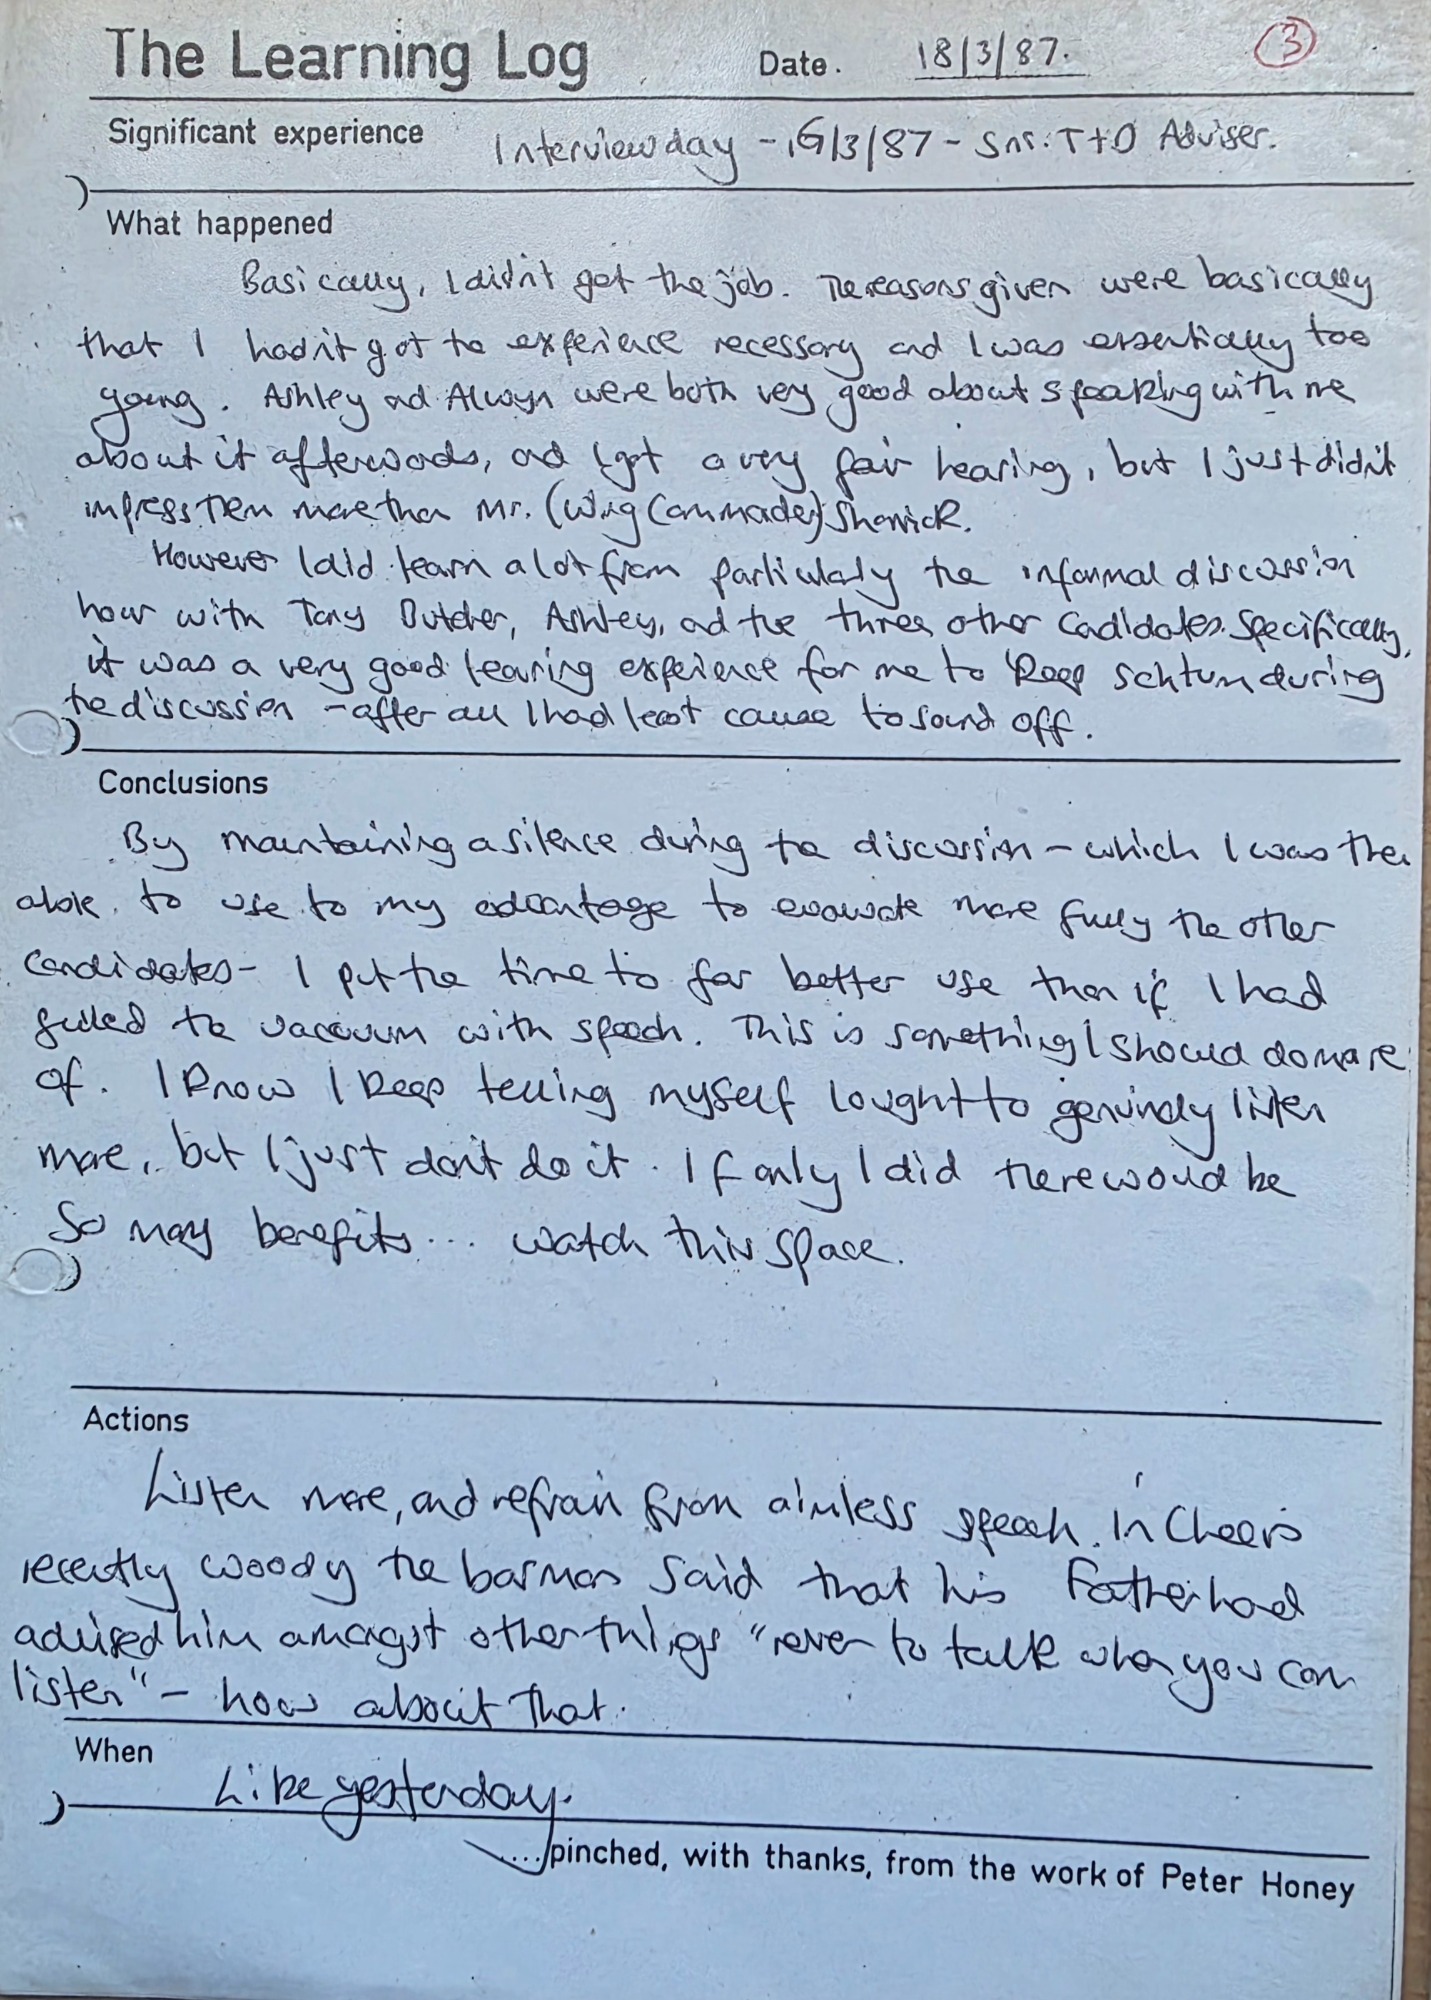 The Learning Log Date. 18/3/87. 3
Significant experience Interview day - 16/3/87 - Snr. T+D Adviser.
What happened
Basically, I didn't get the job. The reasons given were basically
that I hadn't got the experience necessary and I was essentially too
young. Ashley and Alwyn were both very good about speaking with me
about it afterwards, and I got a very fair hearing, but I just didn't
impress them more than Mr. (Wing Commander)
However I did learn a lot from particularly the informal discussion
hour with Tony Butcher, Ashley, and the three other candidates. Specifically,
it was a very good learning experience for me to keep schtum during
the discussion - after all I had least cause to sound off.
Conclusions
By maintaining a silence during the discussion - which I was then
able to use to my advantage to evaluate more fully the other
candidates - I put the time to far better use than if I had
filled the vacuum with speech. This is something I should do more
of. I know I keep telling myself I ought to genuinely listen
more, but I just don't do it. If only I did there would be
so many benefits... watch this space.
Actions
Listen more, and refrain from aimless speech. In Cheers
recently Woody the barman said that his Father had
advised him amongst other things "never to talk when you can
listen" - how about that.
When
Like yesterday.
....pinched, with thanks, from the work of Peter Honey